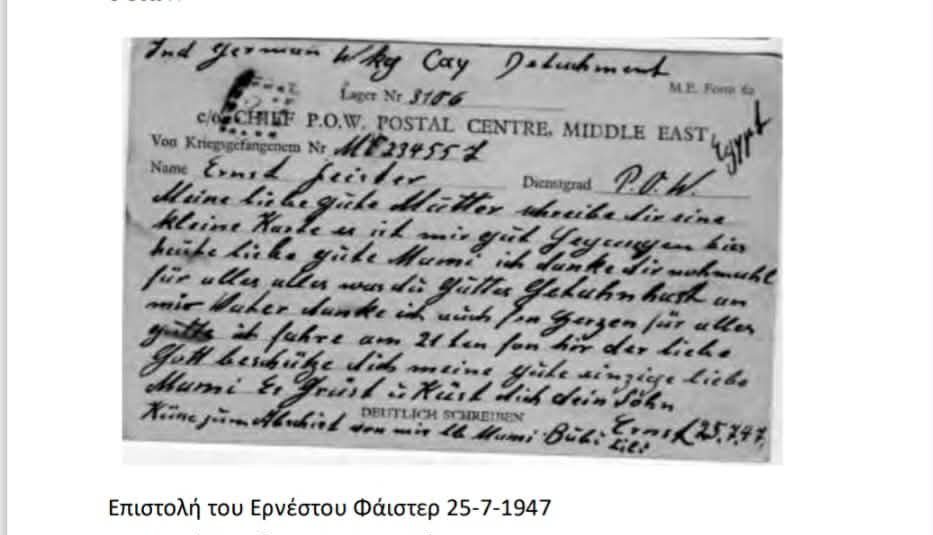 Ind German Wkg Coy Detachment
M.E. Form 62
Lager Nr 3106
c/o CHIEF P.O.W. POSTAL CENTRE, MIDDLE EAST, Egypt
Von Kriegsgefangenem Nr ME234557
Name Ernst Feister Dienstgrad P.O.W.
Meine liebe gute Mutter schreibe dir eine
kleine Karte es ist mir gut gegangen bis
heute liebe gute Mumi ich danke dir nohmahl
für alles alles was du guttes getahn hast an
mir Vater danke ich auch fon Herzen für alles
gutte ich fahre am 21ten fon hir der liebe
Gott beschütze dich meine gute einzige liebe
Mumi Es Grüst u Küst dich dein Sohn
DEUTLICH SCHREIBEN
Ernst 25.7.47.
zum Abschied von mir lb Mumi Bubi
Επιστολή του Ερνέστου Φάιστερ 25-7-1947